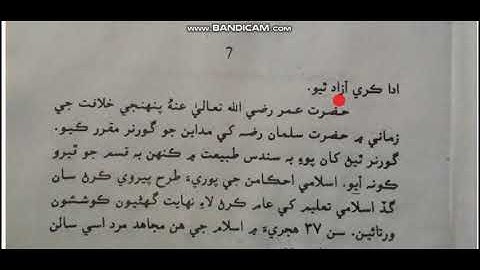 www.BANDICAM.com
7
ادا ڪري آزاد ٿيو.
حضرت عمر رضي الله تعاليٰ عنهٗ پنهنجي خلافت جي
زماني ۾ حضرت سلمان رضه کي مداين جو گورنر مقرر ڪيو.
گورنر ٿيڻ کان پوءِ به سندس طبيعت ۾ ڪنهن به قسم جو ڦيرو
ڪونه آيو. اسلامي احڪامن جي پوريءَ طرح پيروي ڪرڻ سان
گڏ اسلامي تعليم کي عام ڪرڻ لاءِ نهايت گهڻيون ڪوششون
ورتائين. سن ٣٧ هجريءَ ۾ اسلام جي هن مجاهد مرد اسي سالن